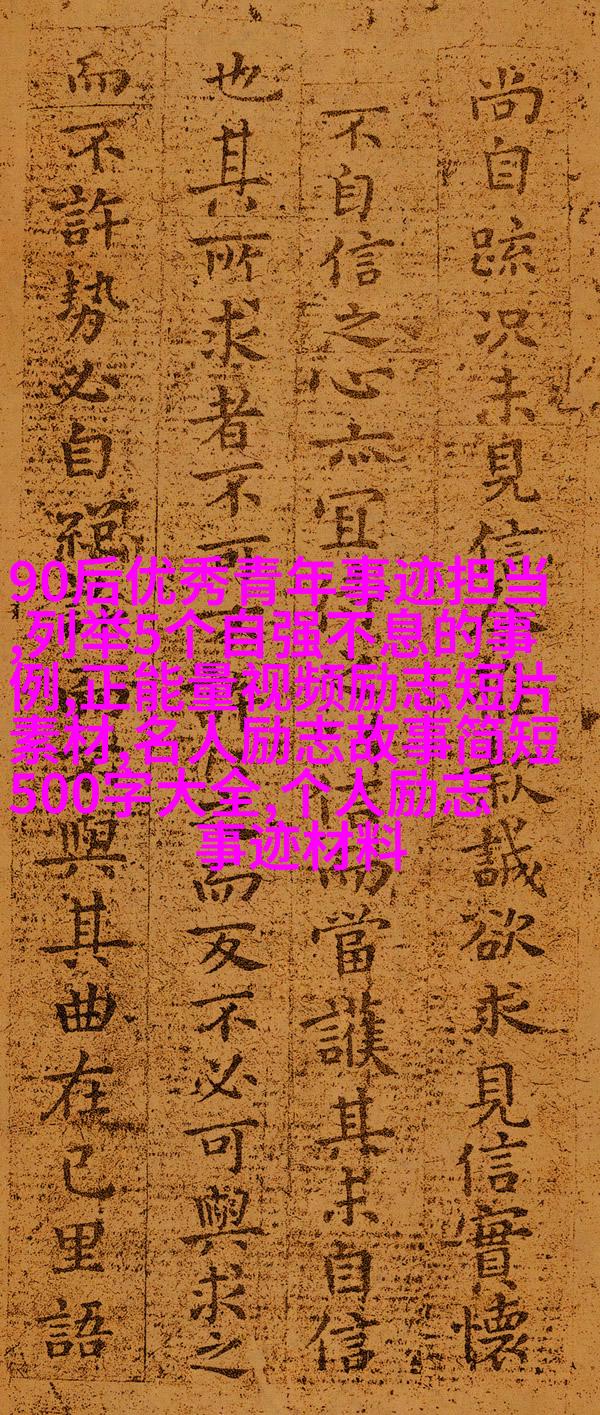 尚自疏况未見信誠欲求見信實懷
不自信之心亦宜當護其未自信
也其所求者不可而反不必可與求之
而不許勢必自絕與其曲在已里語
90后优秀青年事迹担当
,列举5个自强不息的事
例,正能量视频励志短片
素材,名人励志故事简短
500字大全,个人励志
事迹材料